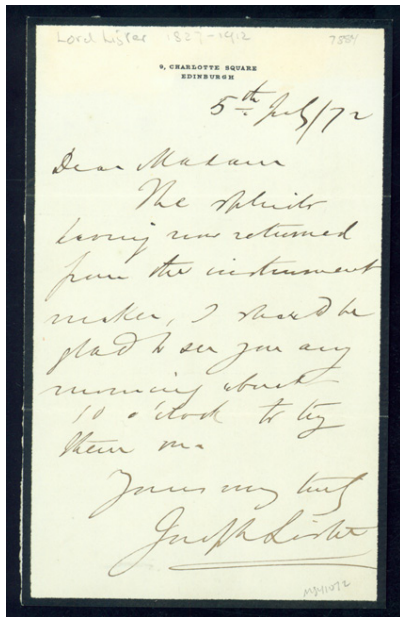 Lord Lister 1827-1912
7884
9, CHARLOTTE SQUARE
EDINBURGH
5th July/72
Dear Madam
The splints
having now returned
from the instrument
maker, I should be
glad to see you any
morning about
10 o'clock to try
them on.
Yours very truly
Joseph Lister